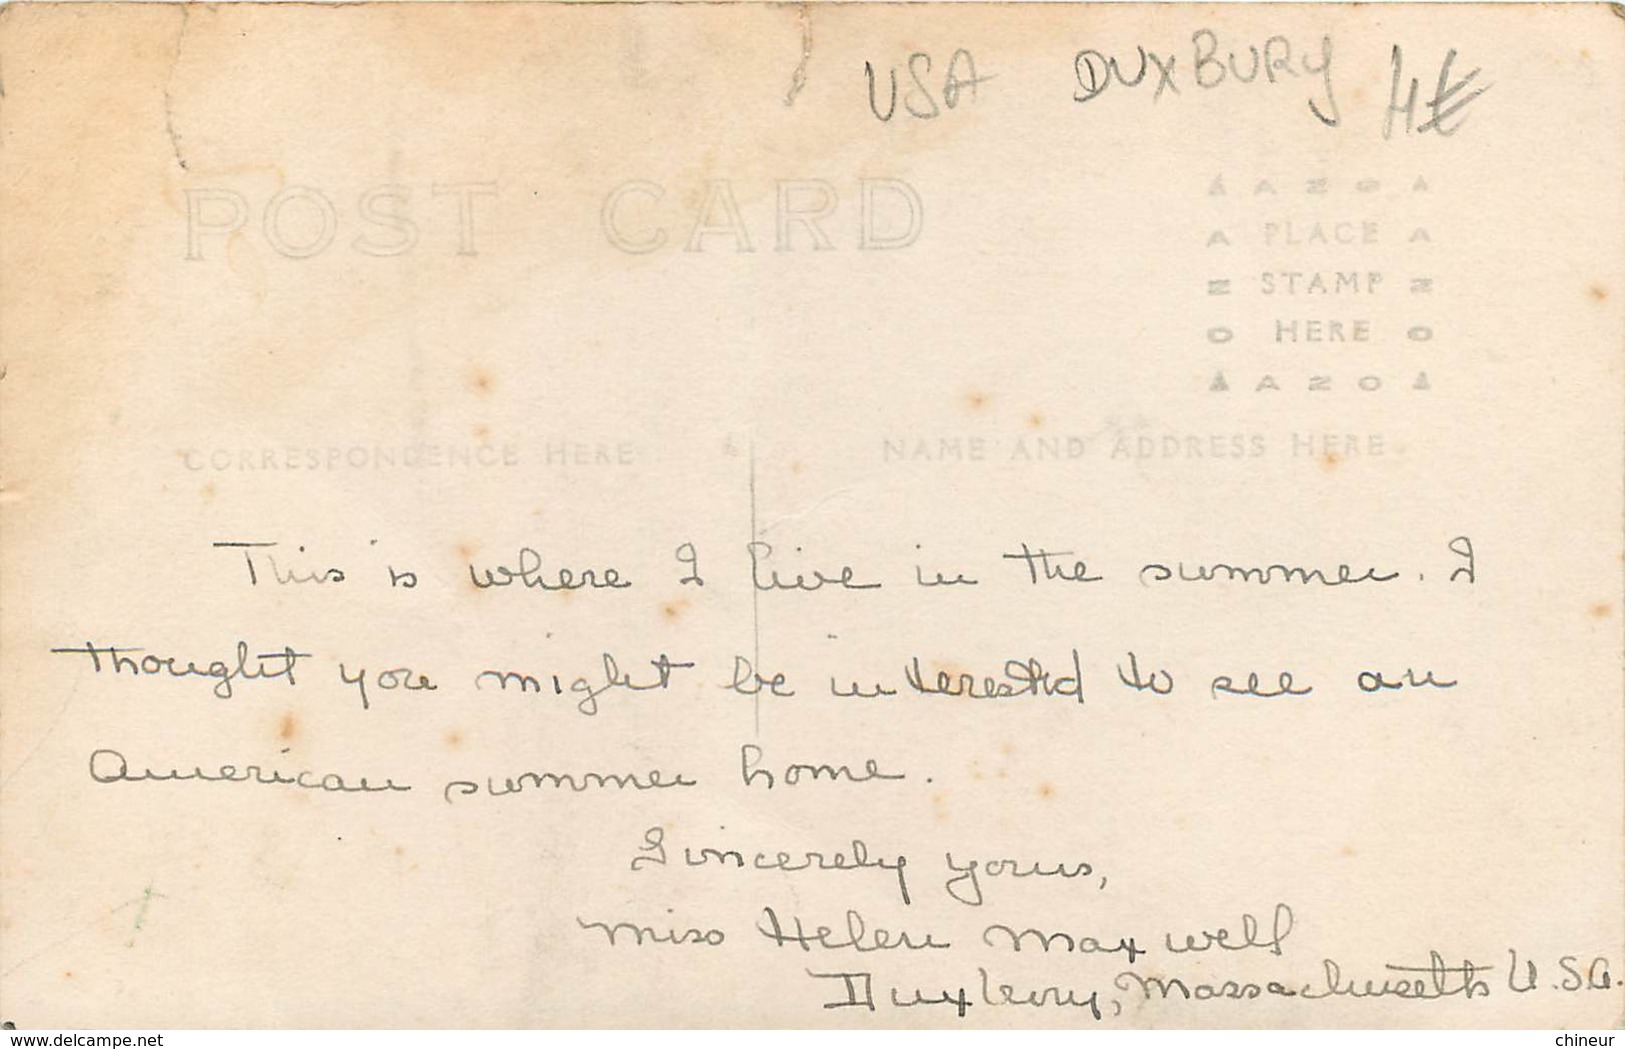 USA DUXBURY 4€
POST CARD
AZO
PLACE
STAMP
HERE
AZO
CORRESPONDENCE HERE
NAME AND ADDRESS HERE
This is where I live in the summer. I
thought you might be interested to see an
American summer home.
Sincerely yours,
Miss Helen Maxwell
Duxbury, Massachusetts U.S.A.
www.delcampe.net
chineur